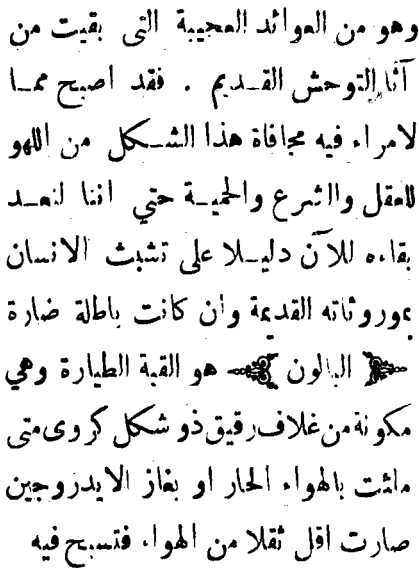 وهو من العوائد العجيبة التي بقيت من
آثار التوحش القديم . فقد اصبح مما
لامراء فيه مجافاة هذا الشكل من اللهو
للعقل والشرع والحمية حتي اننا لنعد
بقاءه للآن دليلا على تشبث الانسان
بموروثاته القديمة وان كانت باطلة ضارة
﴿ البالون ﴾ هو القبة الطيارة وهي
مكونة من غلاف رقيق ذو شكل كروى متى
ملئت بالهواء الحار او بغاز الايدروجين
صارت اقل ثقلا من الهواء فتسبح فيه